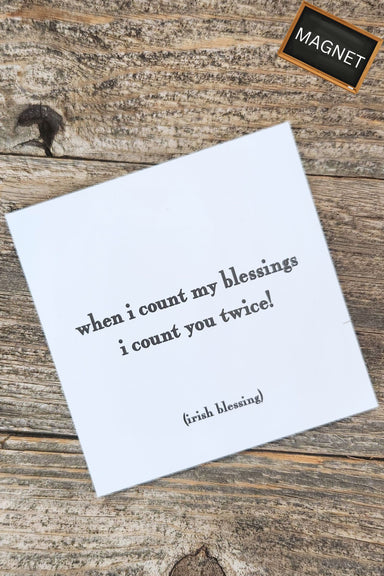 MAGNET
when i count my blessings
i count you twice!
(irish blessing)